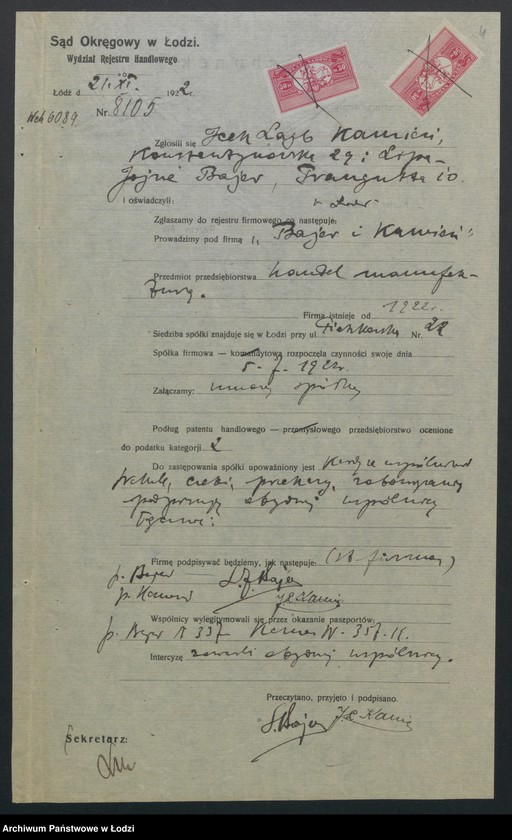 4
Sąd Okręgowy w Łodzi.
Wydział Rejestru Handlowego
Łódź d. 21. XI. 1922 r.
Nr. 8105
Zgłosili się Icek Lajb Kamień,
Konstantynowska 29 i Lipa-
Jojne Bajer, Traugutta 10
i oświadczyli: w Łodzi
Zgłaszamy do rejestru firmowego co następuje:
Prowadzimy pod firmą „Bajer i Kamień"
Przedmiot przedsiębiorstwa handel manufak-
turą.
Firma istnieje od 1922 r.
Siedziba spółki znajduje się w Łodzi przy ul. Piotrkowska Nr. 22
Spółka firmowa — komandytowa rozpoczęła czynności swoje dnia
1922 r.
Załączamy: umowę spółki
Podług patentu handlowego — przemysłowego przedsiębiorstwo ocenione
do podatku kategorji 2
Do zastępowania spółki upoważniony jest każdy wspólnik
Weksle, czeki, przekazy, zobowiązania
podpisują obydwaj wspólnicy
łącznie:
Firmę podpisywać będziemy, jak następuje: (st. firmowy)
p. Bajer L. J. Bajer
p. Kamień J. L. Kamień
Wspólnicy wylegitymowali się przez okazanie paszportów:
p. Bajer N 337 Kamień N. 357.
Intercyzę zawarli obydwaj wspólnicy.
Przeczytano, przyjęto i podpisano.
L. Bajer J. L. Kamień
Sekretarz:
Archiwum Państwowe w Łodzi